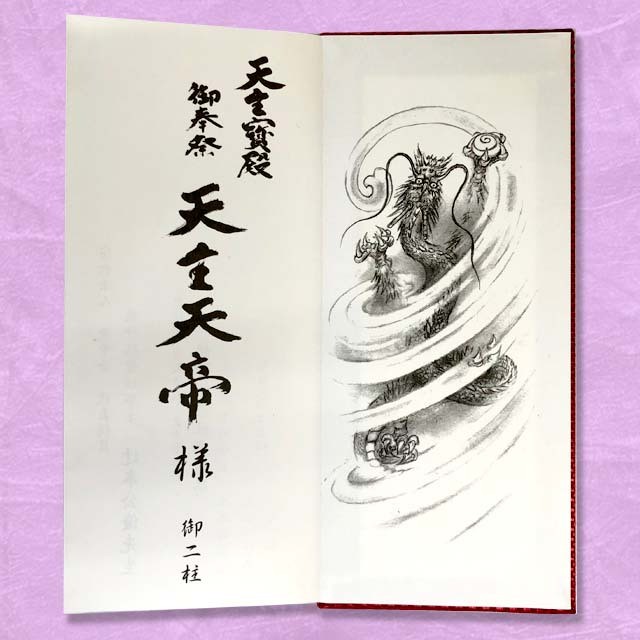 天主寳殿
御奉祭
天主天帝様 御二柱